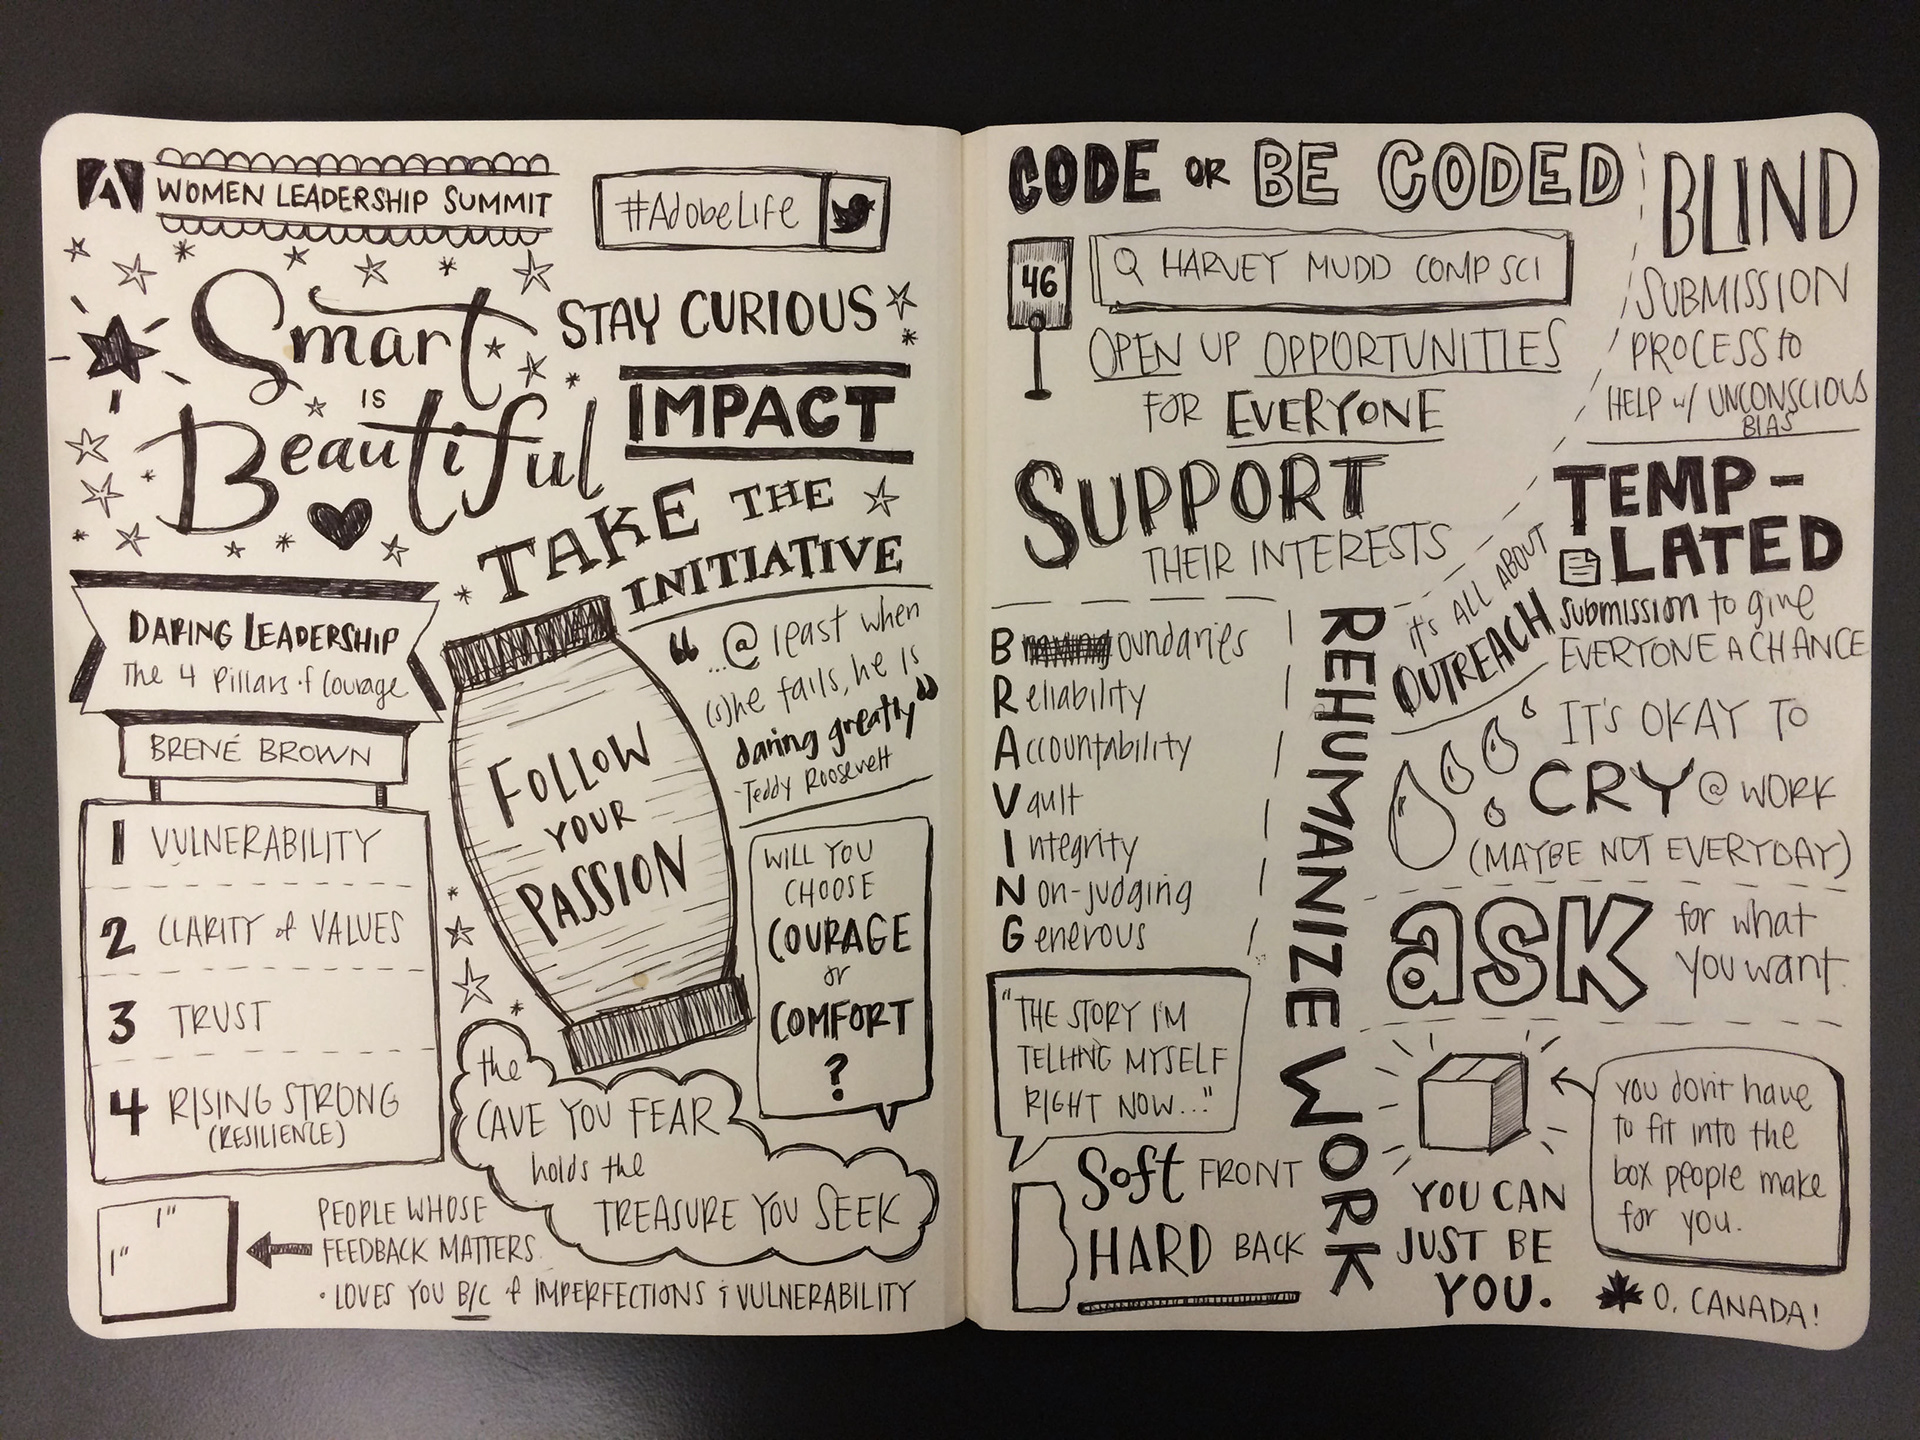 WOMEN LEADERSHIP SUMMIT
#AdobeLife
Smart
IS
Beautiful
STAY CURIOUS
IMPACT
TAKE THE
INITIATIVE
DARING LEADERSHIP
The 4 Pillars of Courage
BRENÉ BROWN
1 VULNERABILITY
2 CLARITY of VALUES
3 TRUST
4 RISING STRONG
(RESILIENCE)
FOLLOW
YOUR
PASSION
"...@ least when
(s)he fails, he is
daring greatly"
-Teddy Roosevelt
WILL YOU
CHOOSE
COURAGE
or
COMFORT
?
the
CAVE YOU FEAR
holds the
TREASURE YOU SEEK
1"
1"
PEOPLE WHOSE
FEEDBACK MATTERS.
• LOVES YOU B/C of IMPERFECTIONS & VULNERABILITY
CODE OR BE CODED
46
HARVEY MUDD COMP SCI
OPEN UP OPPORTUNITIES
FOR EVERYONE
SUPPORT
THEIR INTERESTS
BLIND
SUBMISSION
PROCESS to
HELP w/ UNCONSCIOUS
BIAS
TEMP-
LATED
submission to give
EVERYONE A CHANCE
it's ALL ABOUT
OUTREACH
Boundaries
Reliability
Accountability
Vault
Integrity
Non-judging
Generous
REHUMANIZE WORK
IT'S OKAY TO
CRY @ WORK
(MAYBE NOT EVERYDAY)
ask
for what
you want.
"THE STORY I'M
TELLING MYSELF
RIGHT NOW..."
Soft FRONT
HARD BACK
YOU CAN
JUST BE
YOU.
you don't have
to fit into the
box people make
for you.
O, CANADA!